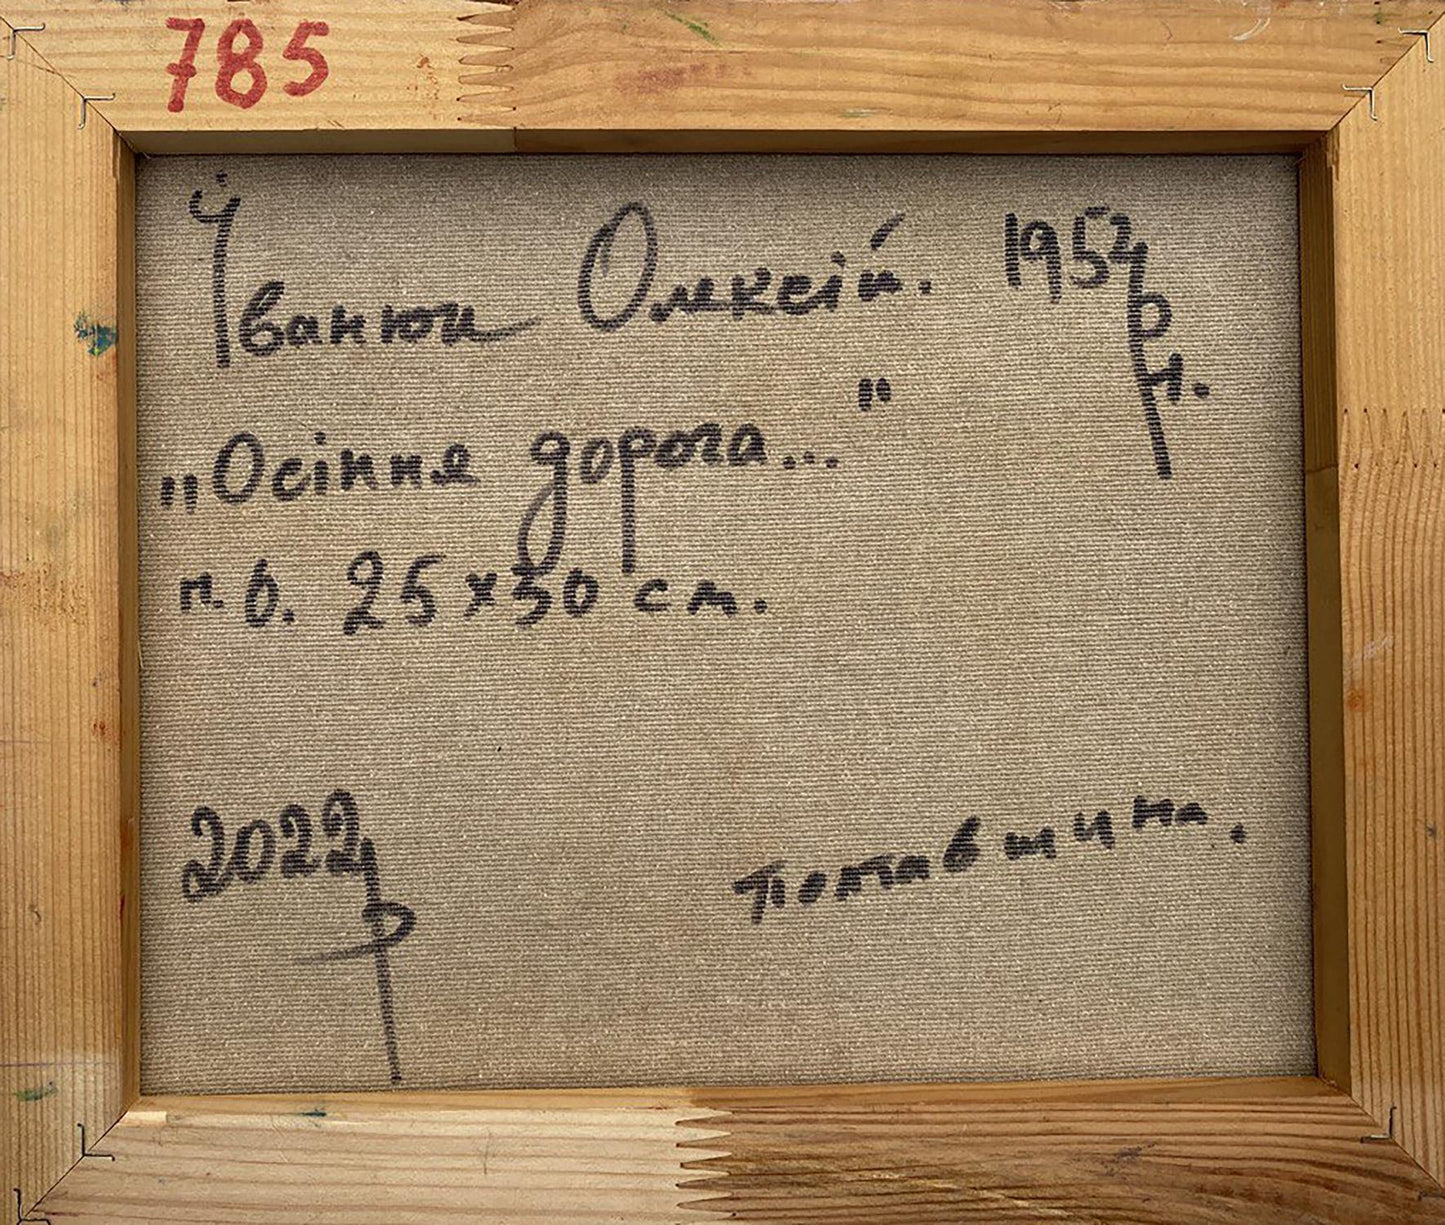 785
Іванюк Олексій. 1952 р н.
„Осіння дорога..."
п. о. 25x30 см.
2022 р
Полтавщина.